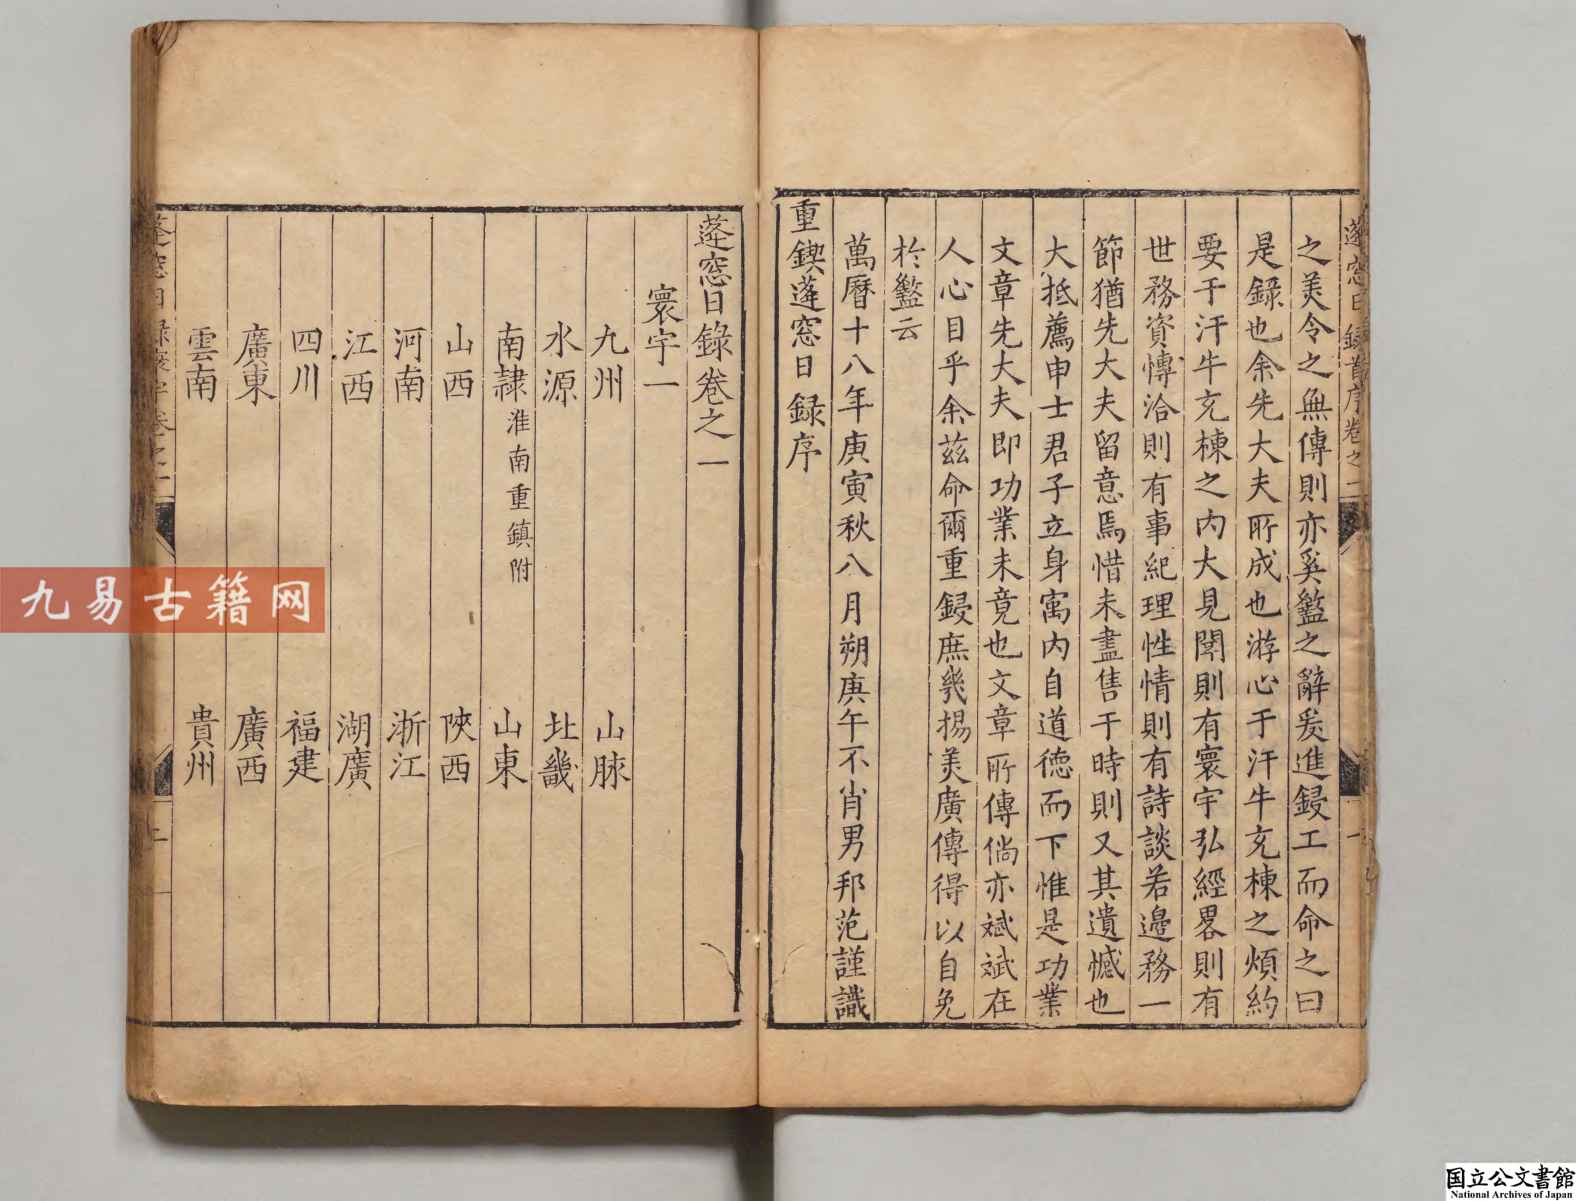 之美令之無傳則亦奚籃之辭爰進鋟工而命之曰
是錄也余先大夫所成也游心于汗牛充棟之煩約
要于汗牛充棟之内大見聞則有寰宇弘經畧則有
世務資愽洽則有事紀理性情則有詩談若邉務一
節猶先大夫留意焉惜未盡售于時則又其遺憾也
大抵薦申士君子立身寓内自道德而下惟是功業
文章先大夫即功業未竟也文章所傳倘亦斌斌在
人心目乎余茲命爾重鋟庶幾揚美廣傳得以自免
於盭云
萬曆十八年庚寅秋八月朔庚午不肖男邦范謹識
重鍥蓬窓日録序
蓬窓日錄卷之一
寰宇一
九州 山脉
水源 北畿
南隸 淮南重鎮附 山東
山西 陝西
河南 浙江
江西 湖廣
四川 福建
廣東 廣西
雲南 貴州
九易古籍网
国立公文書館
National Archives of Japan